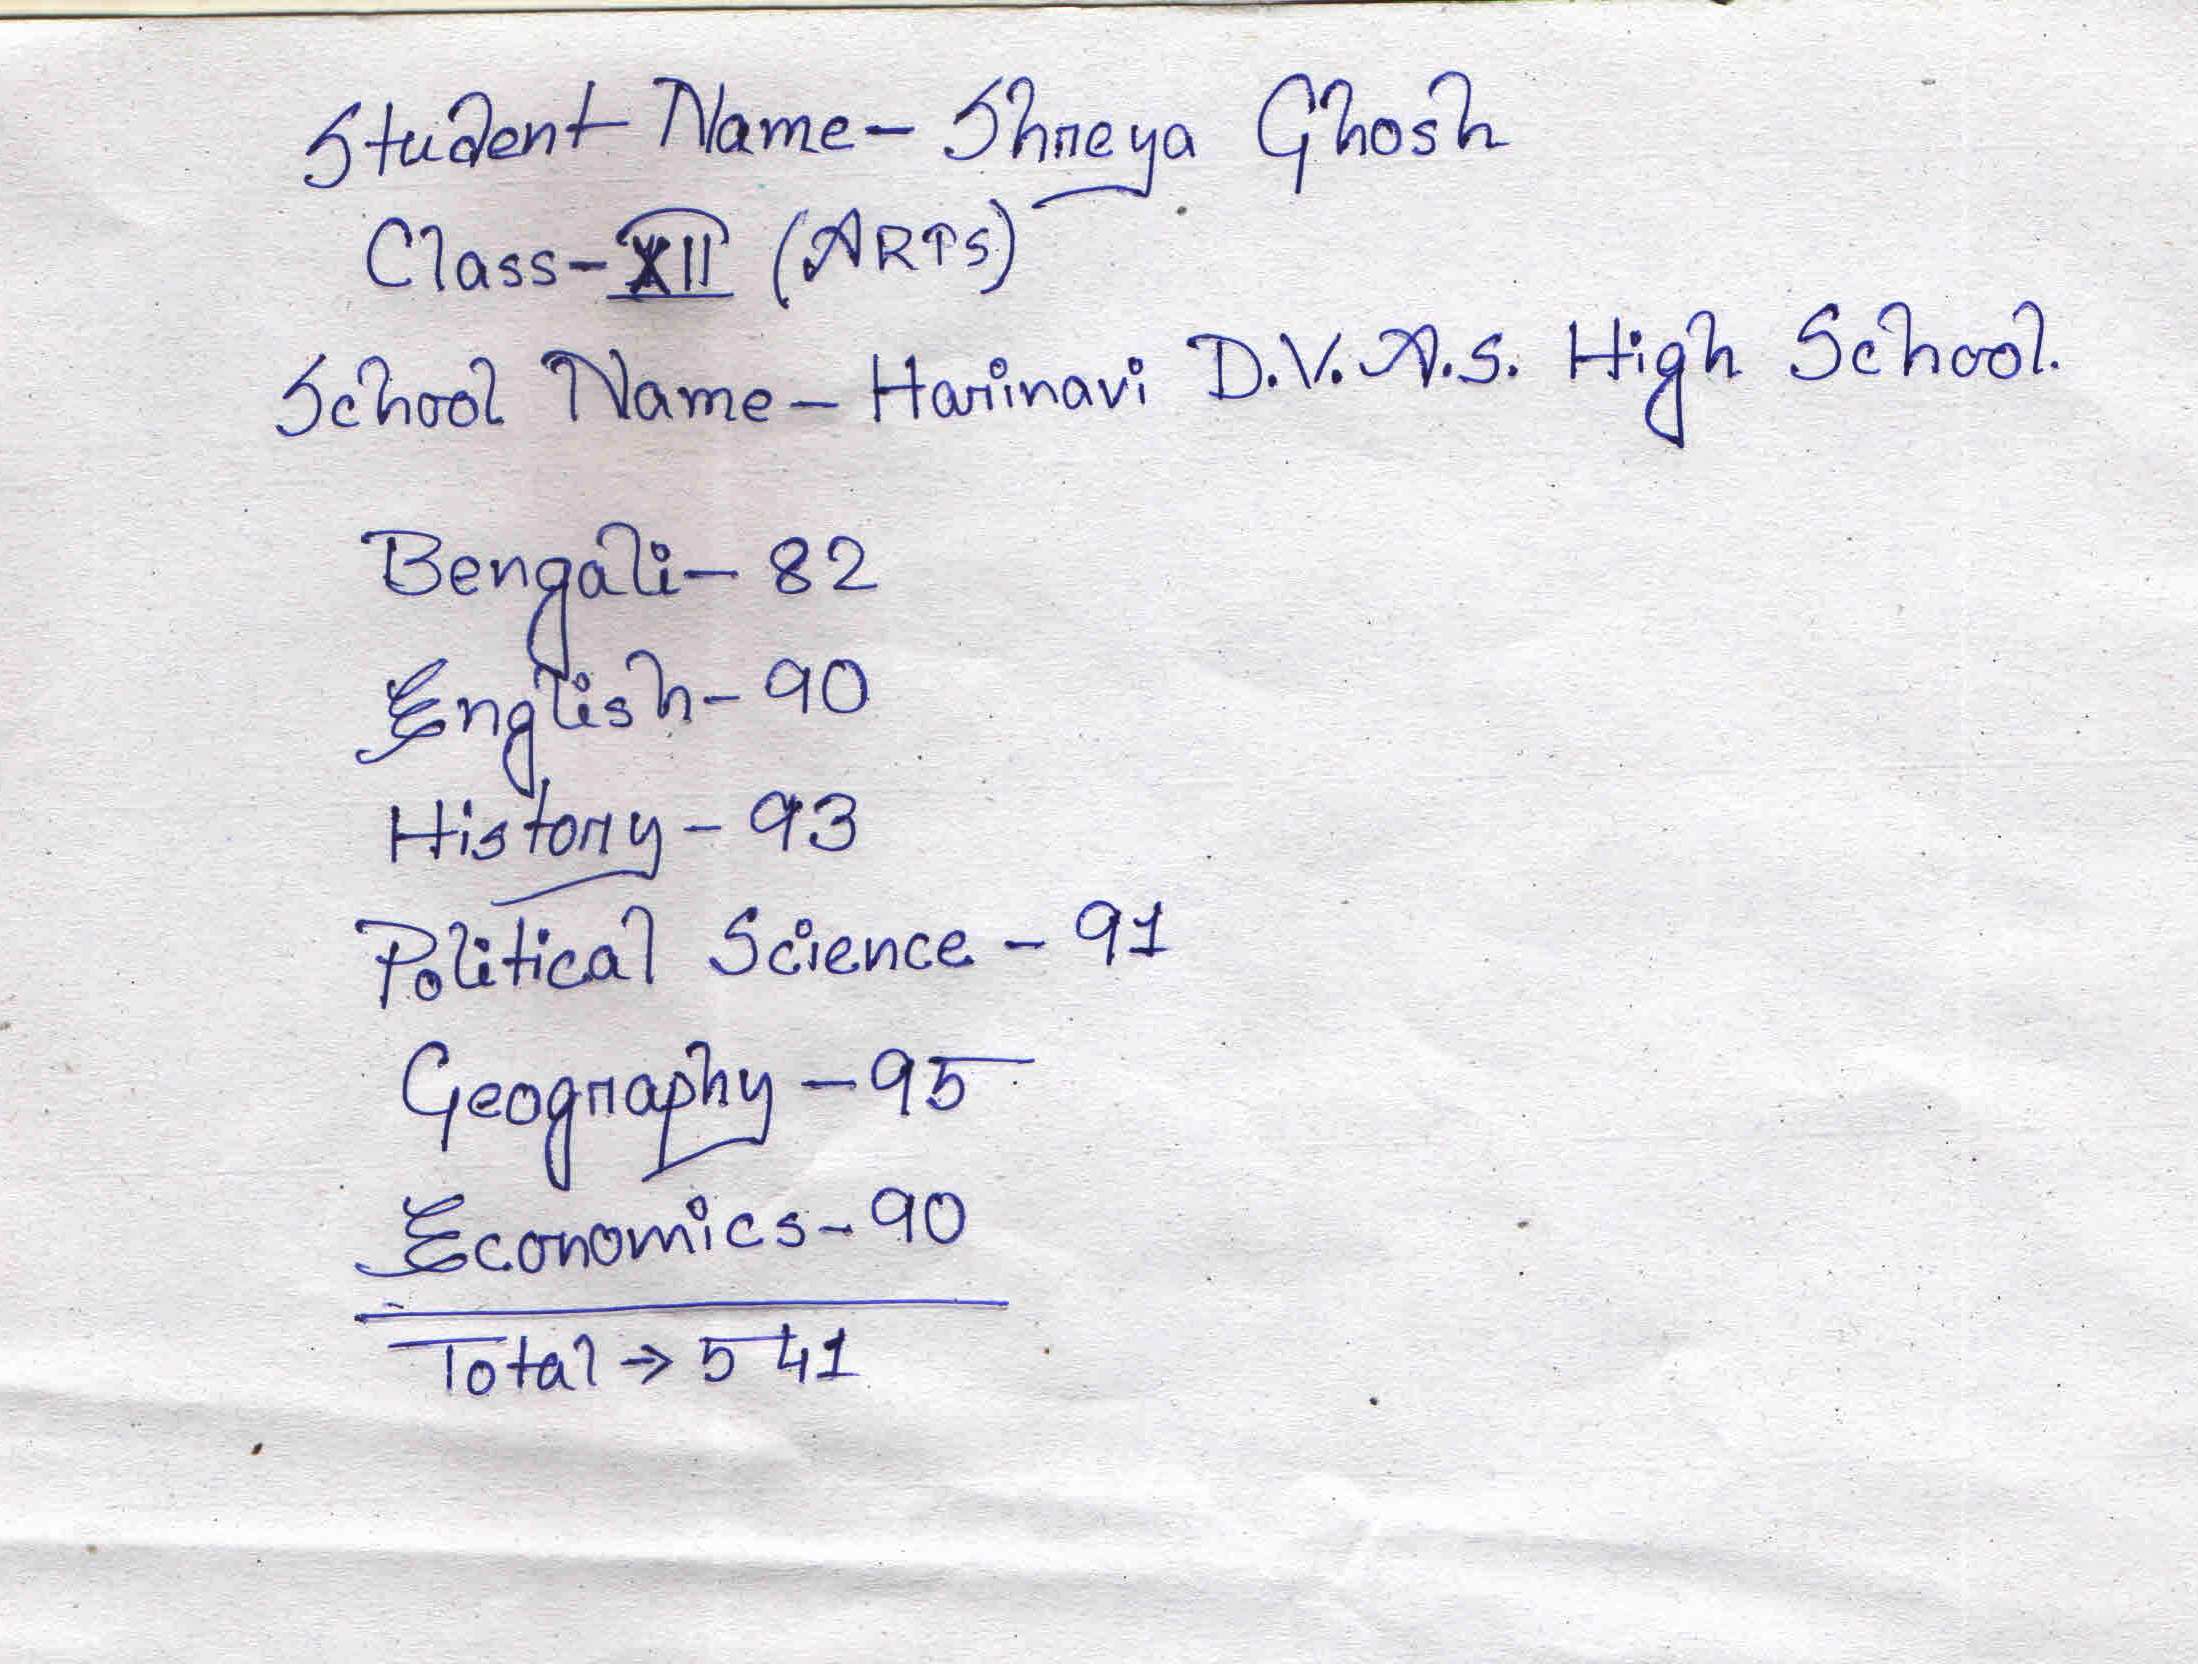 Student Name - Shreya Ghosh
Class - XII (ARTS)
School Name - Harinavi D.V.A.S. High School.
Bengali - 82
English - 90
History - 93
Political Science - 91
Geography - 95
Economics - 90
Total → 541